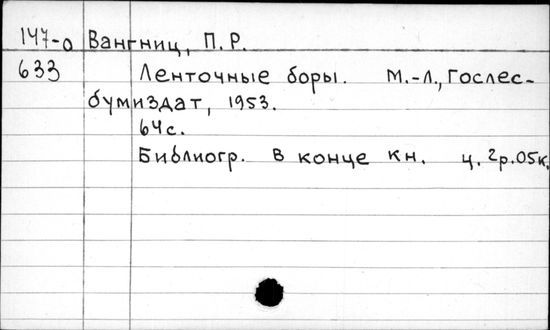 147-о Вангниц, П. Р.
633 Ленточные боры. М.-Л., Гослес-
бумиздат, 1953.
64с.
Библиогр. в конце кн. ц. 2р.05к.